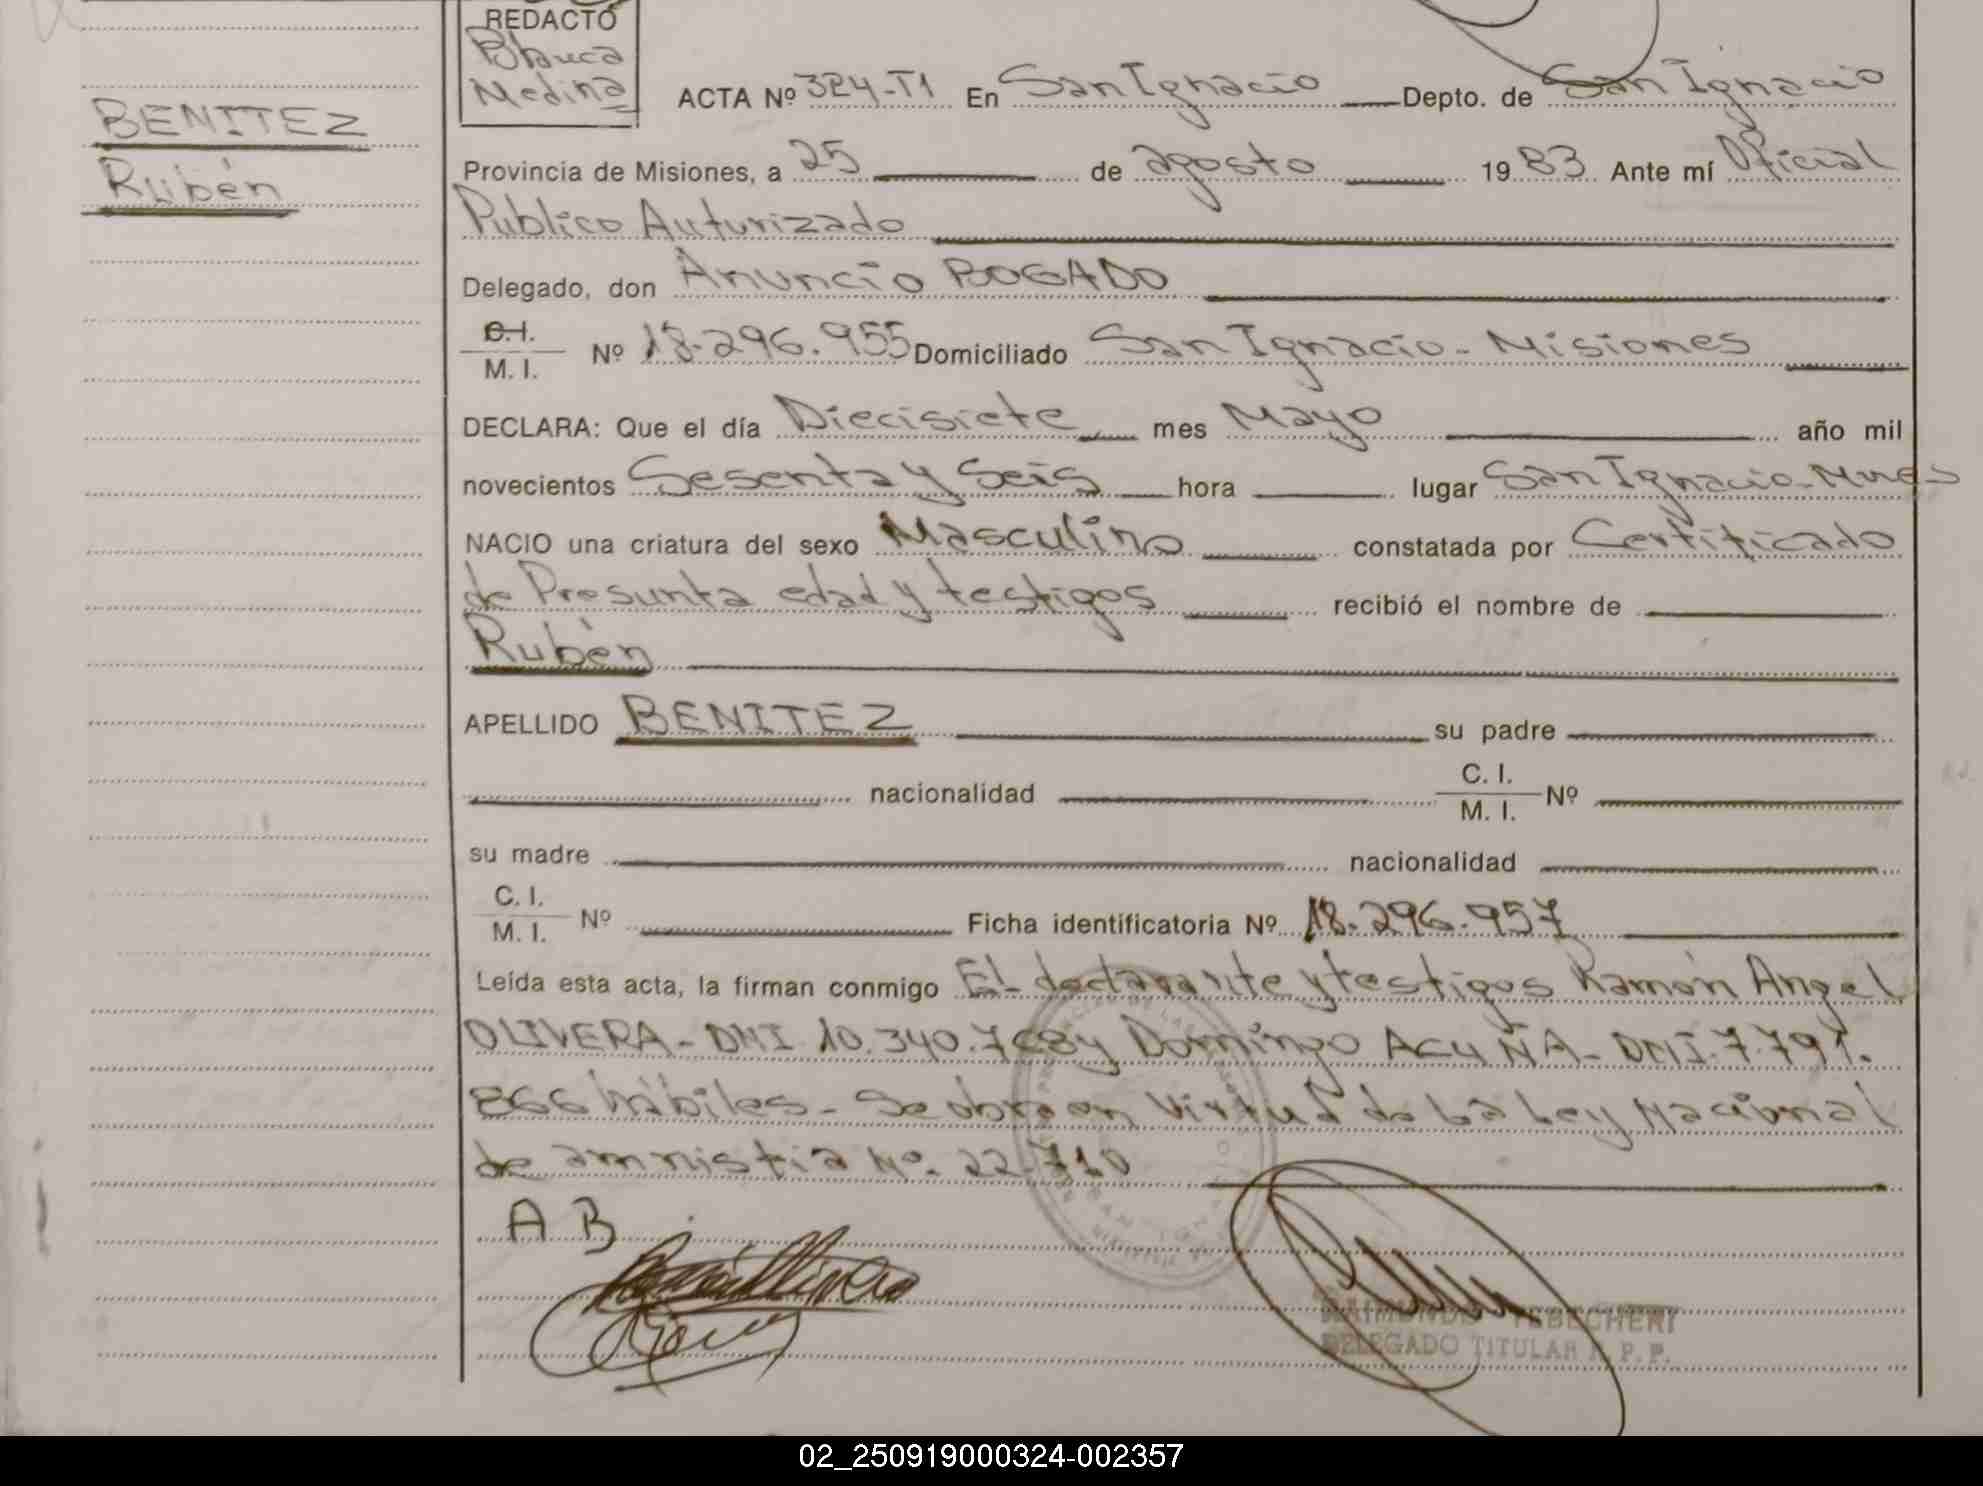 REDACTÓ
Blanca
Medina
BENITEZ
Rubén
ACTA Nº 324-T1 En San Ignacio Depto. de San Ignacio
Provincia de Misiones, a 25 de agosto 1983 Ante mí Oficial
Publico Auturizado
Delegado, don Anuncio BOGADO
C.I.
M. I. Nº 18.296.955 Domiciliado San Ignacio - Misiones
DECLARA: Que el día Diecisiete mes Mayo año mil
novecientos Sesenta y Seis hora lugar San Ignacio - Mnes
NACIO una criatura del sexo Masculino constatada por Certificado
de Presunta edad y testigos recibió el nombre de
Rubén
APELLIDO BENITEZ su padre
nacionalidad C. I. M. I. Nº
su madre nacionalidad
C. I. M. I. Nº Ficha identificatoria Nº 18.296.957
Leída esta acta, la firman conmigo El declarante y testigos Ramón Angel
OLIVERA - DNI 10.340.768 y Domingo ACUÑA - DNI. 7.791.
866 hábiles - Se obra en Virtud de la Ley Nacional
de amnistia Nº. 22.710
A B
RAIMUNDO YEBECHERI
DELEGADO TITULAR R. P. P.
02_250919000324-002357